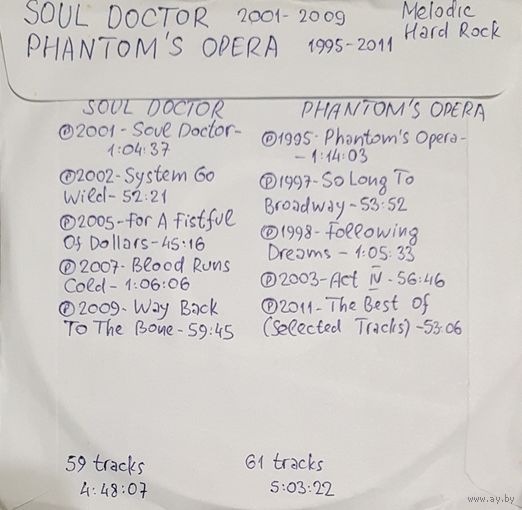 SOUL DOCTOR 2001-2009
Melodic
Hard Rock
PHANTOM'S OPERA 1995-2011
SOUL DOCTOR
℗2001-Soul Doctor-
1:04:37
℗2002-System Go
Wild-52:21
℗2005-For A Fistful
Of Dollars-45:16
℗2007-Blood Runs
Cold-1:06:06
℗2009-Way Back
To The Bone-59:45
59 tracks
4:48:07
PHANTOM'S OPERA
℗1995-Phantom's Opera-
-1:14:03
℗1997-So Long To
Broadway-53:52
℗1998-Following
Dreams-1:05:33
℗2003-Act IV-56:46
℗2011-The Best Of
(Selected Tracks)-53:06
61 tracks
5:03:22
www.ay.by